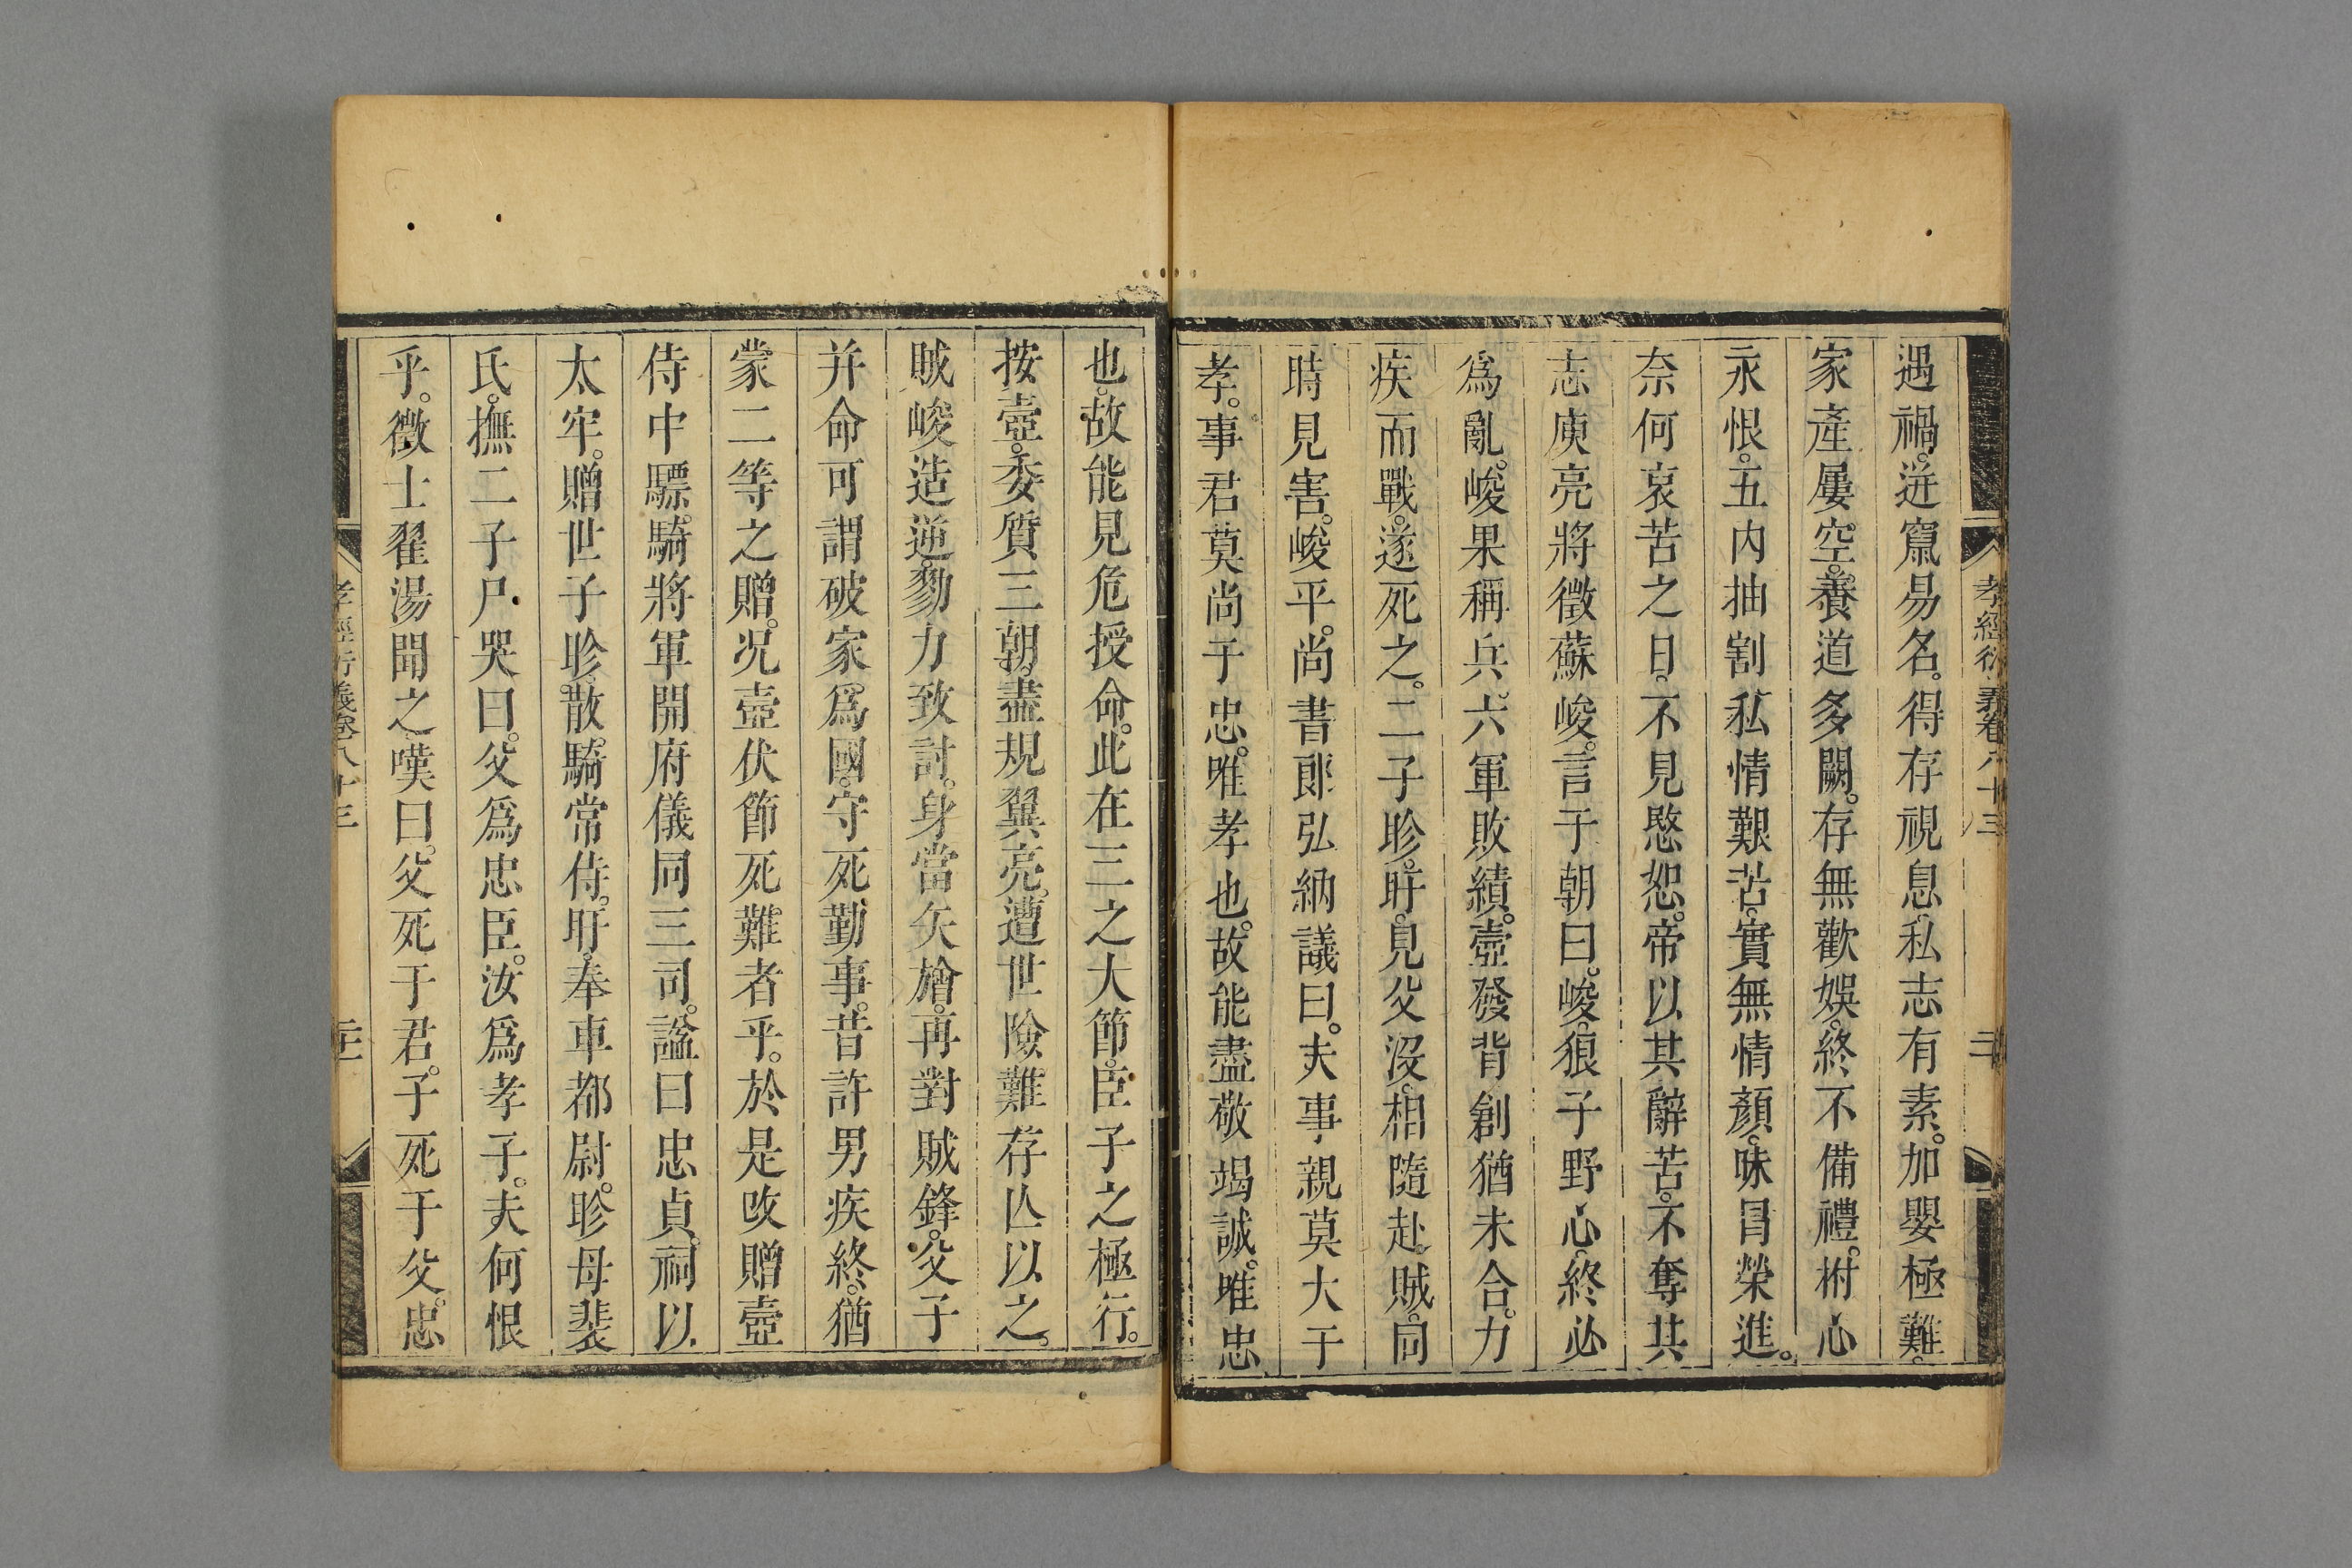 孝經衍義卷八十三
二
遇禍。迸竄易名。得存視息。私志有素。加嬰極難。
家產屢空。養道多闕。存無歡娛。終不備禮。拊心
永恨。五內抽割。私情艱苦。實無情顏。昧冒榮進。
奈何哀苦之日。不見愍恕。帝以其辭苦。不奪其
志庾亮將徵蘇峻。言于朝曰。峻。狼子野心。終必
爲亂。峻果稱兵。六軍敗績。壼發背創猶未合。力
疾而戰。遂死之。二子眕。盱。見父沒。相隨赴賊。同
時見害。峻平。尚書郎弘納議曰。夫事親莫大于
孝。事君莫尚于忠。唯孝也。故能盡敬竭誠。唯忠
也。故能見危授命。此在三之大節。臣子之極行。
按壼。委質三朝。盡規翼亮。遭世險難。存亾以之。
賊峻造逆。勠力致討。身當矢旝。再對賊鋒。父子
并命。可謂破家爲國。守死勤事。昔許男疾終。猶
蒙二等之贈。况壼伏節死難者乎。於是改贈壼
侍中驃騎將軍開府儀同三司。謚曰忠貞。祠以
太牢。贈世子眕。散騎常侍。盱。奉車都尉。眕母裴
氏。撫二子尸哭曰。父爲忠臣。汝爲孝子。夫何恨
乎。徵士翟湯聞之嘆曰。父死于君。子死于父。忠
孝經衍義卷八十三